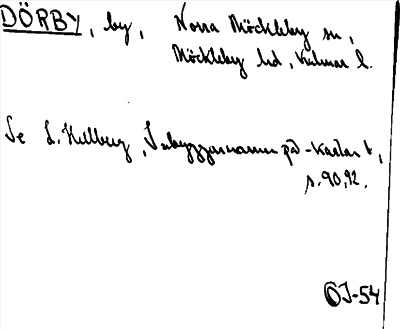 DÖRBY, by, Norra Möckleby sn,
Möckleby hd, Kalmar l.
Se L. Hellberg, Inbyggarnamn på -karlar t,
s. 90, 92.
ÖJ-54